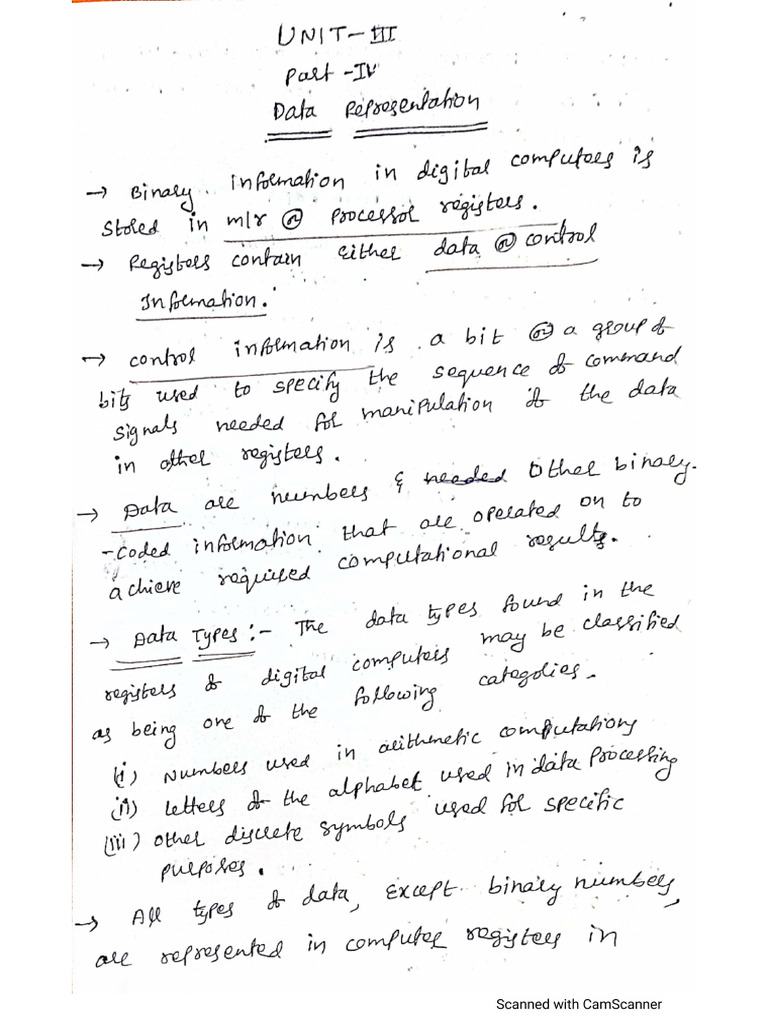 UNIT-III
Part-IV
Data Representation
→ Binary information in digital computers is
stored in m/r (or) processor registers.
→ Registers contain either data (or) control
Information.
→ control information is a bit (or) a group of
bits used to specify the sequence of command
signals needed for manipulation of the data
in other registers.
→ Data are numbers & needed other binary
-coded information that are operated on to
achieve required computational results.
→ Data Types:- The data types found in the
registers of digital computers may be classified
as being one of the following categories.
(i) Numbers used in arithmetic computations
(ii) letters of the alphabet used in data processing
(iii) other discrete symbols used for specific
purposes.
→ All types of data, except binary numbers,
are represented in computer registers in
Scanned with CamScanner